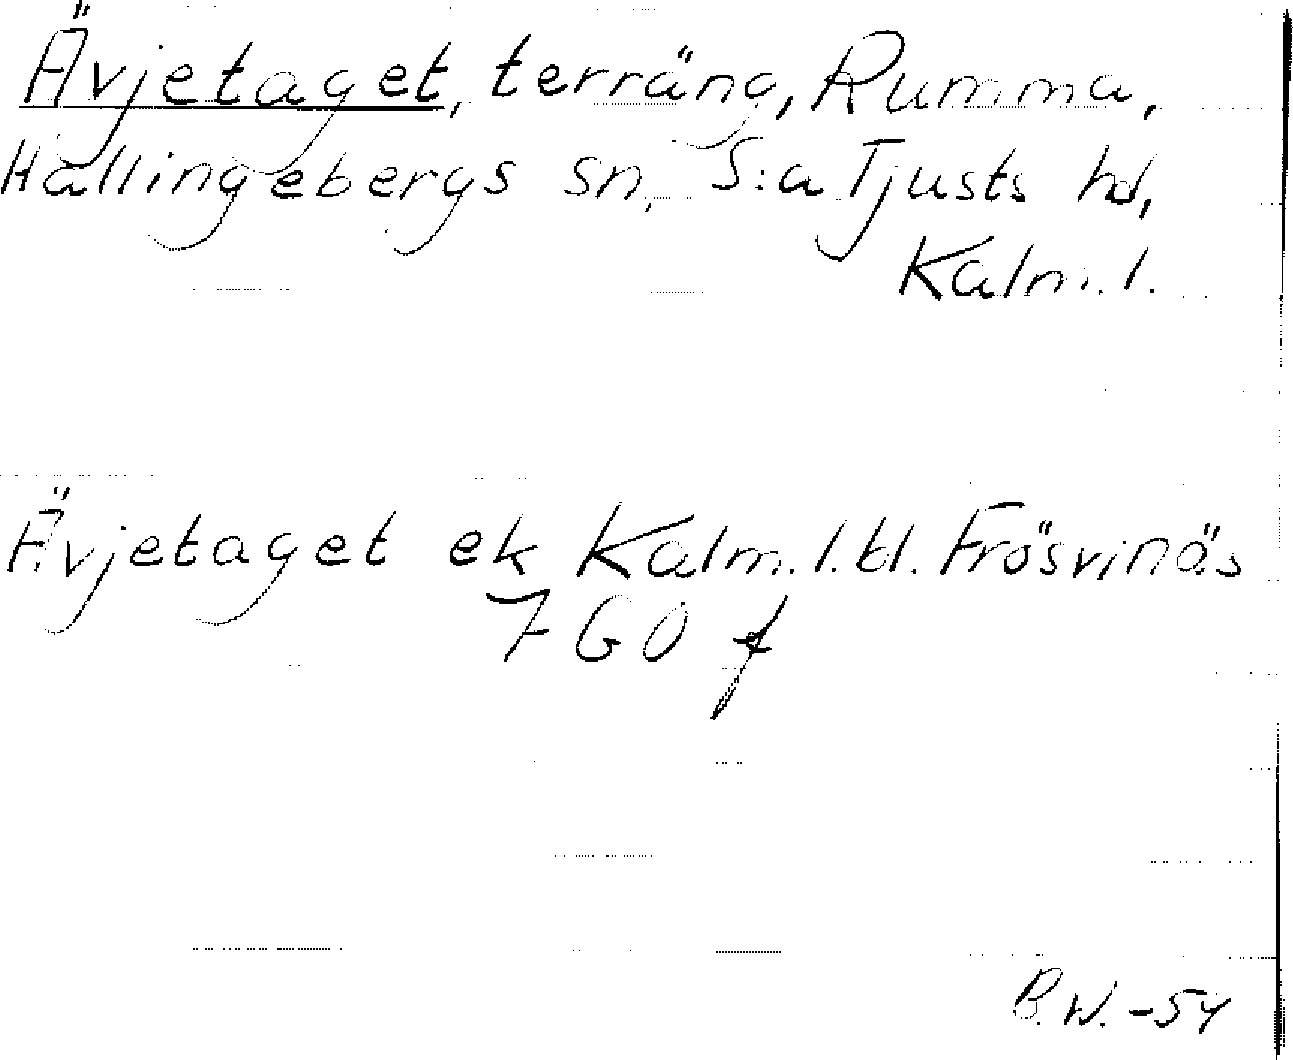 Ävjetaget, terräng, Rumma,
Hallingebergs sn, S:a Tjusts hd,
Kalm. l.
Ävjetaget ek Kalm. l. bl. Frösvinäs
7 G 0 f
B.W. -54